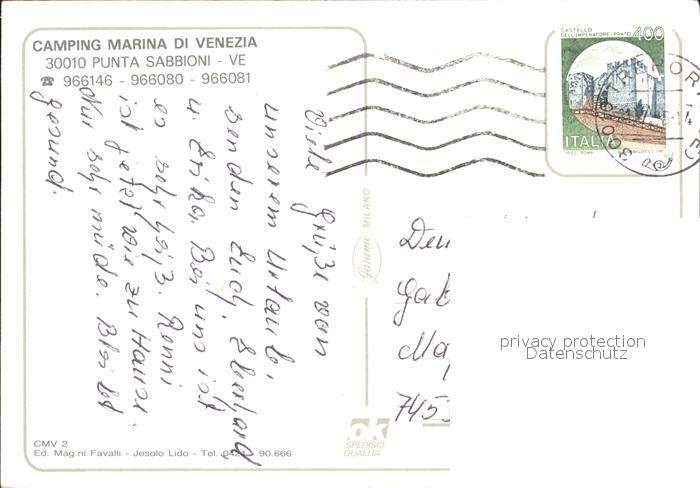 CAMPING MARINA DI VENEZIA
30010 PUNTA SABBIONI - VE
☎ 966146 - 966080 - 966081
CASTELLO
DELL'IMPERATORE - PRATO
400
ITALIA
Viele Grüße von
unserem Urlaub,
senden Euch, Eberhard
u. Erika. Bei uns ist
es sehr heiß. Ronni
ist jetzt wie zu Hause.
Nur sehr müde. Bleibt
gesund.
Garami MILANO
745
privacy protection
Datenschutz
ok
SPEDISCI
QUALITÀ
CMV 2
Ed. Mag.ni Favalli - Jesolo Lido - Tel. 0421 90.666